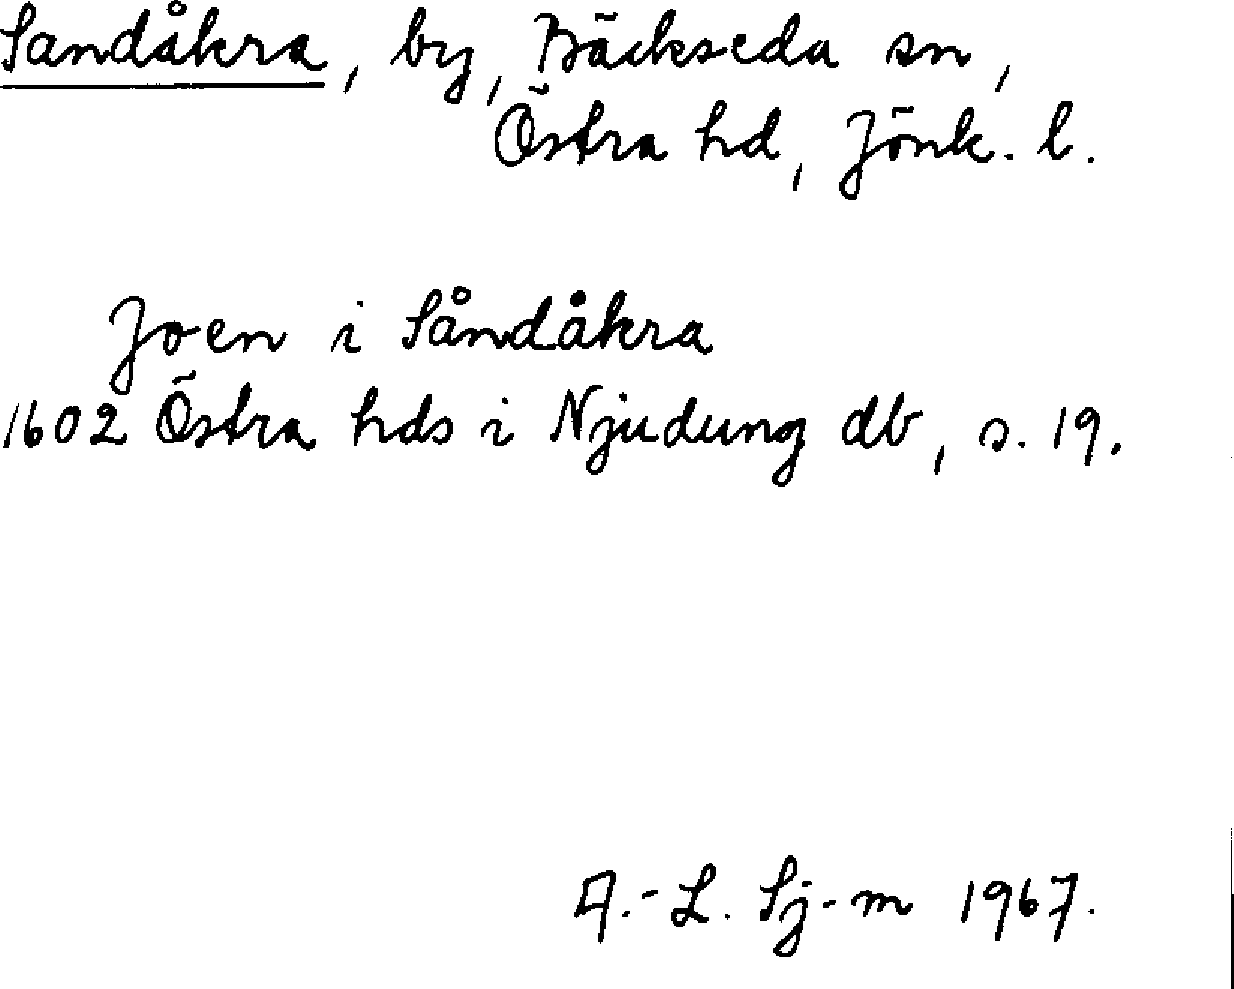 Sandåkra, by, Bäckseda sn,
Östra hd, Jönk. l.
Joen i Såndåkra
1602 Östra hds i Njudung db, s. 19.
A.-L. Sj-m 1967.